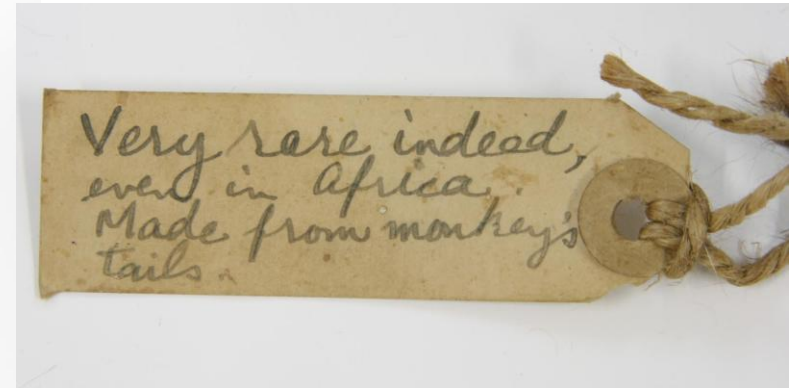 Very rare indeed,
even in Africa.
Made from monkey's
tails.